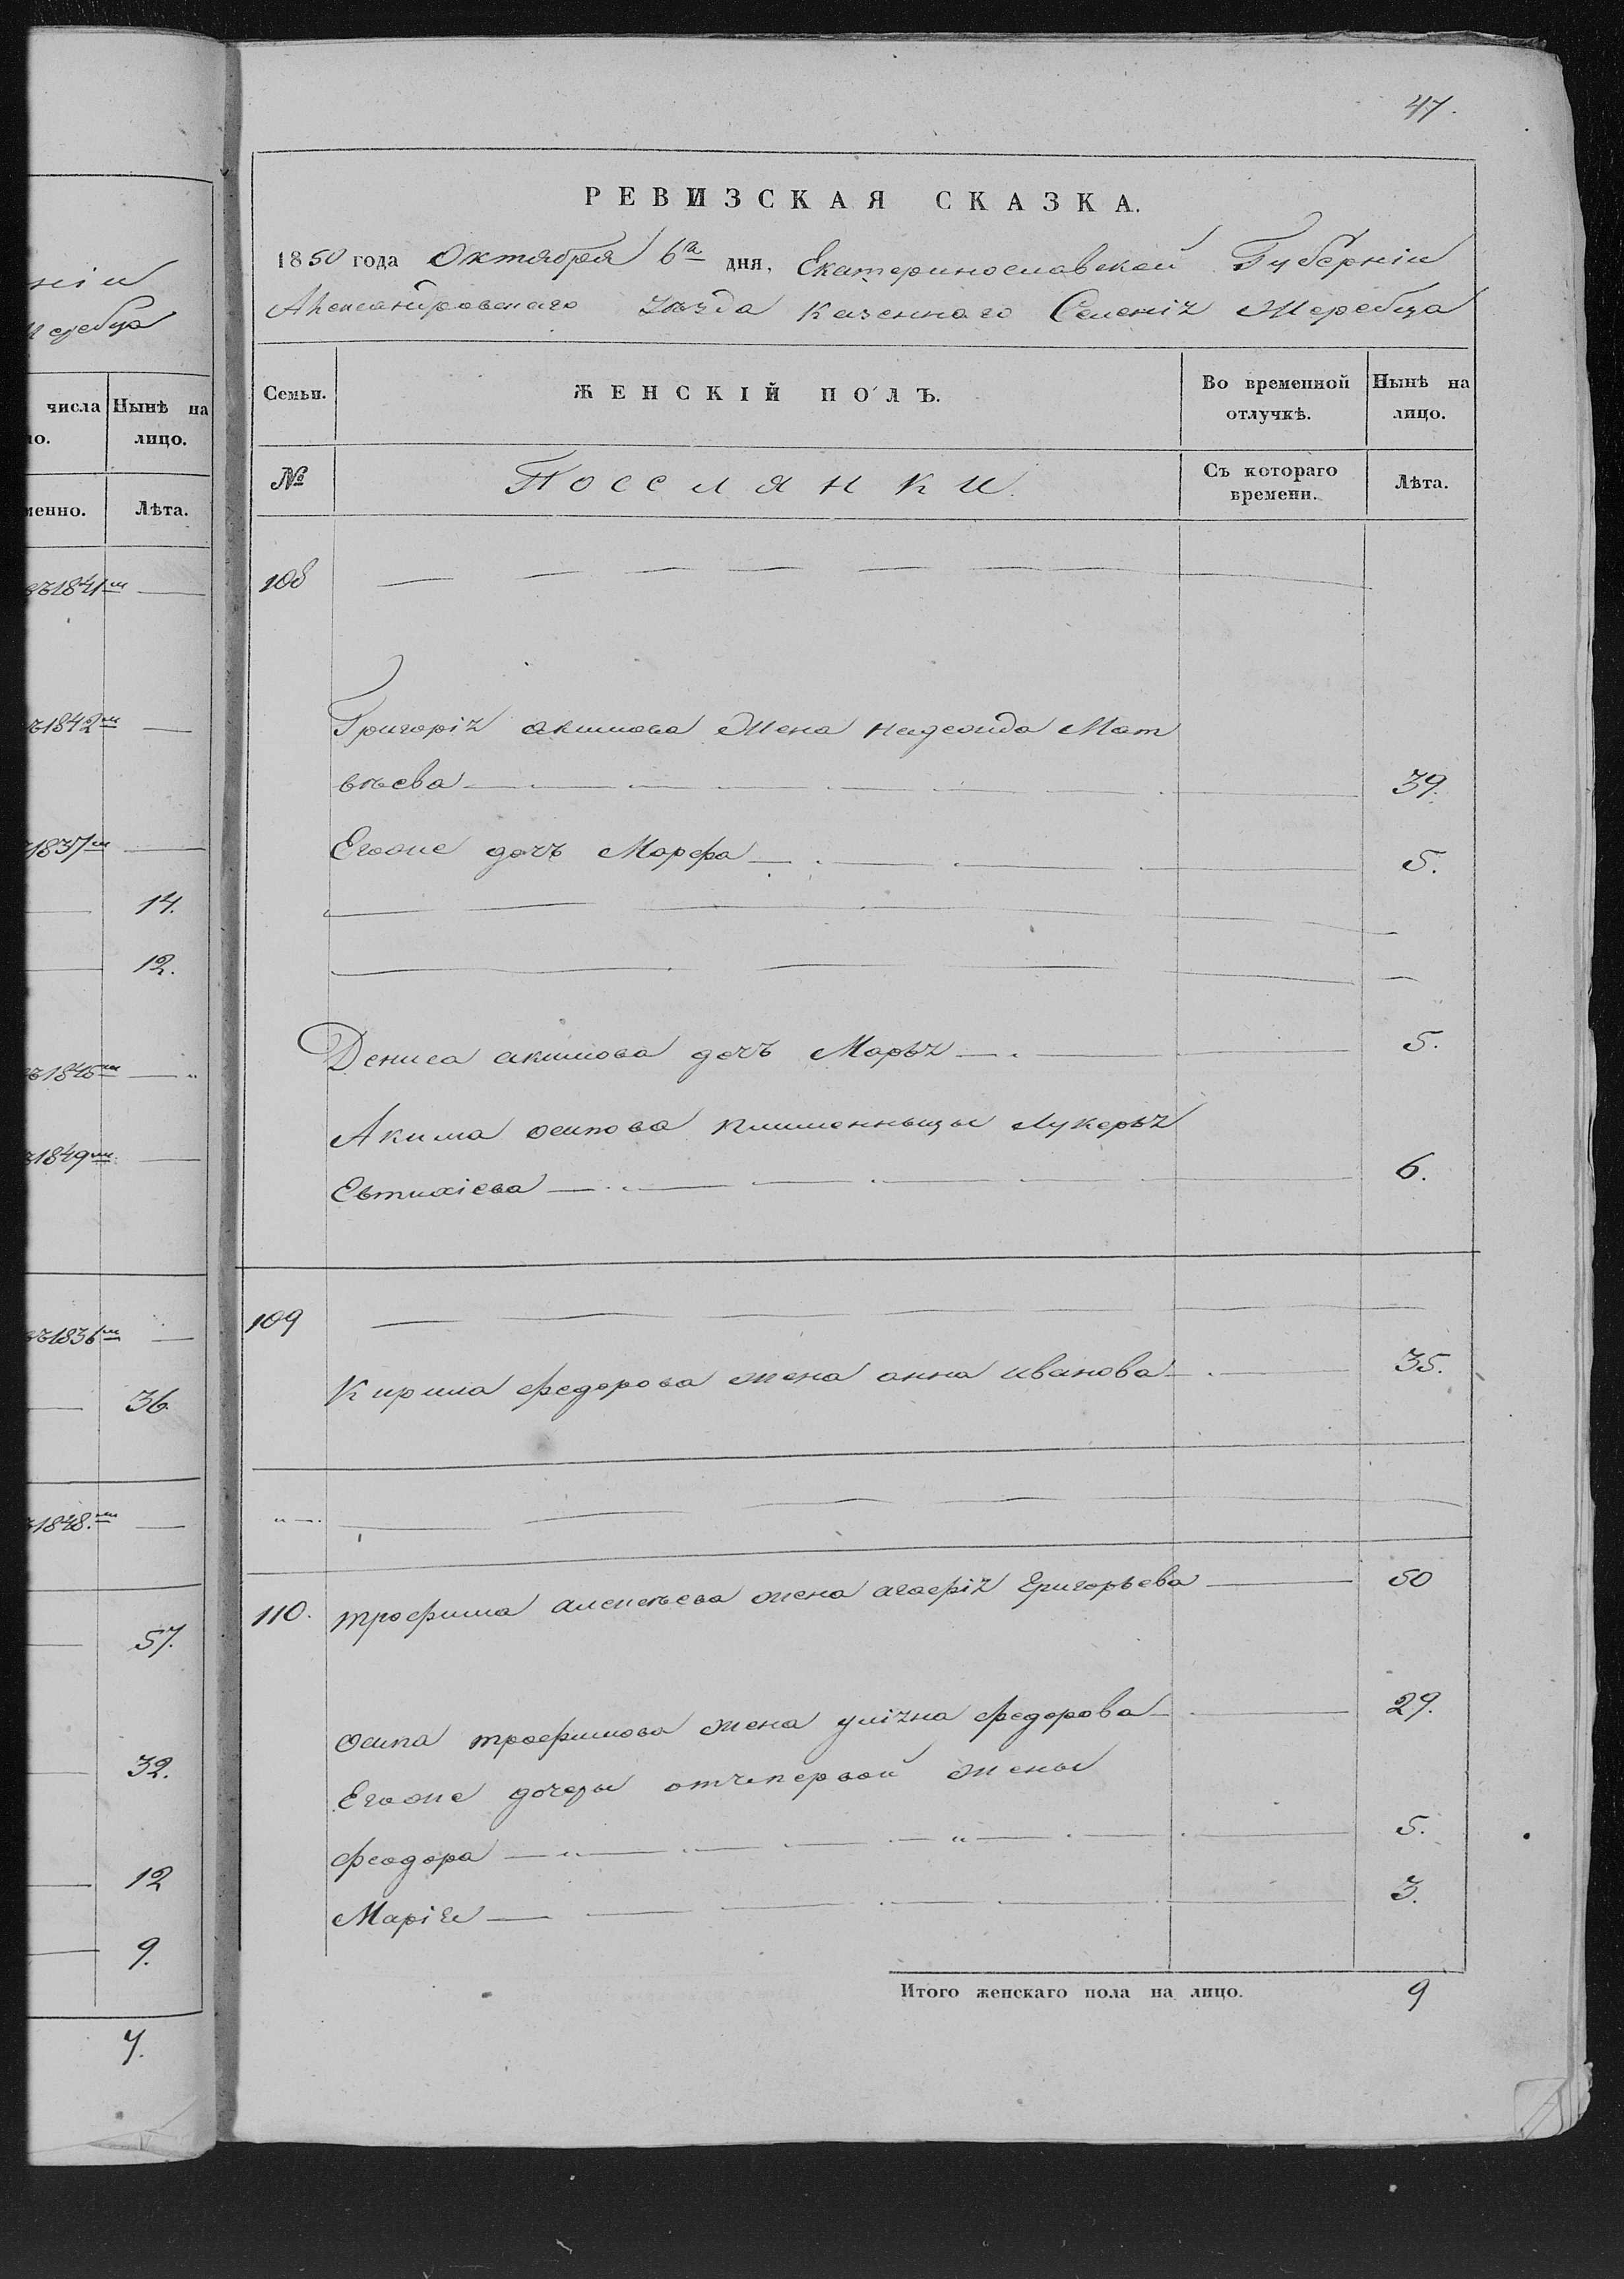 нiи
еребца
числа Нынѣ на
но. лицо.
менно. Лѣта.
1841м
1842м
1837м
14.
12.
1845м
1849м
1836м
36.
1848.м
57.
32.
12
9.
7.
47.
РЕВИЗСКАЯ СКАЗКА.
1850 года Октября 6го дня, Екатеринославской Губернiи
Александровскаго уѣзда Казеннаго Селенiя Жеребца
Семьи. ЖЕНСКIЙ ПОЛЪ. Во временной отлучкѣ. Нынѣ на лицо.
№ Поселянки. Съ котораго времени. Лѣта.
108
Григорiя акимова Жена надежда Мат
вѣева 39.
Егоже дочь Марфа 5.
Дениса акимова дочь Марья 5.
Акима осипова племенныцы Лукерья
Евтихiева 6.
109
Кирила федорова жена анна иванова 35.
110. трофима алексѣева жена агафiя Григорьева 50
осипа трофимова жена улiяна федорова 29.
Егоже дочеры отъ первой жены
феодора 5.
Марiя 3.
Итого женскаго пола на лицо. 9